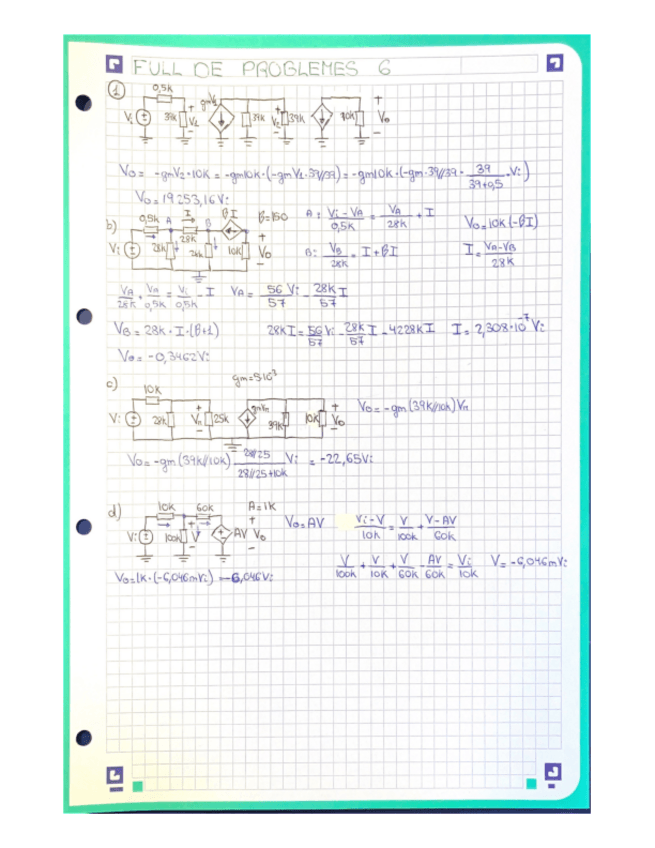 FULL DE PROBLEMES 6
1
0,5k
Vi 39k V1 gmV1 39k V2 39k 10k Vo
Vo = -gmV2·10K = -gm10K·(-gmV1·39//39) = -gm10K·(-gm·39//39·39/(39+0,5)·Vi)
Vo = 19253,16Vi
b) 0,5k A I B βI β=150
Vi 28k 28k 28k 10k Vo
A: (Vi-VA)/0,5K = VA/28K + I
Vo = 10K(-βI)
B: VB/28K = I+βI
I = (VA-VB)/28K
VA/28K + VA/0,5K = Vi/0,5K - I VA = 56Vi/57 - 28KI/57
VB = 28K·I·(β+1) 28KI = 56/57 Vi - 28K/57 I - 4228KI I = 2,308·10⁻⁷Vi
Vo = -0,3462Vi
c) gm=5·10³
10K
Vi 28k Vπ 25k gmVπ 39k 10K Vo
Vo = -gm(39K//10K)Vπ
Vo = -gm(39K//10K) 28//25/(28//25+10K) Vi = -22,65Vi
d) 10K 60K A=1K
Vi 100k V AV Vo
Vo = AV (Vi-V)/10K = V/100K + (V-AV)/60K
V/100K + V/10K + V/60K - AV/60K = Vi/10K V = -6,046mVi
Vo = 1K·(-6,046mVi) = -6,046Vi